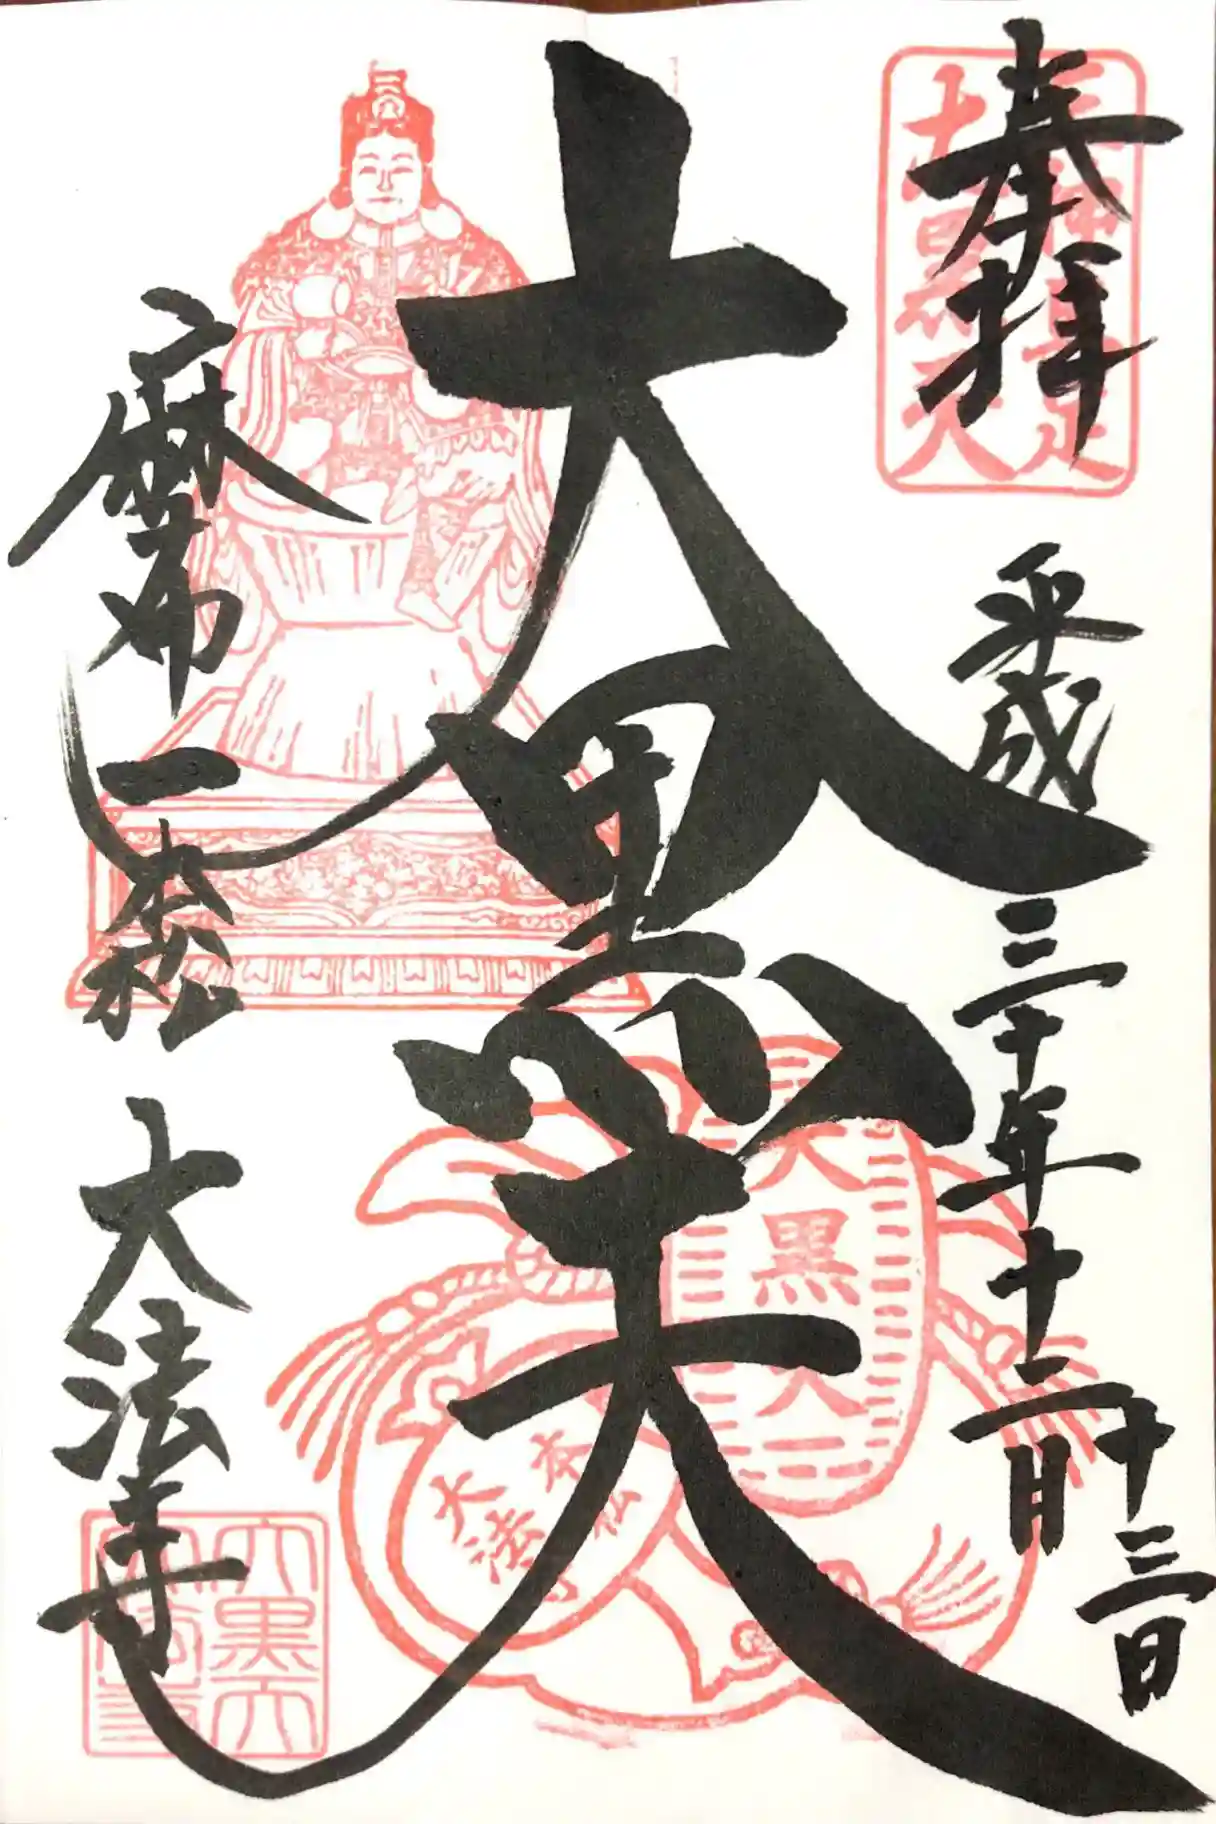 奉拝
平成三十年十二月十三日
大黒天
麻布一本松
大法寺
大黒天
大黒天
大法寺
大黒天